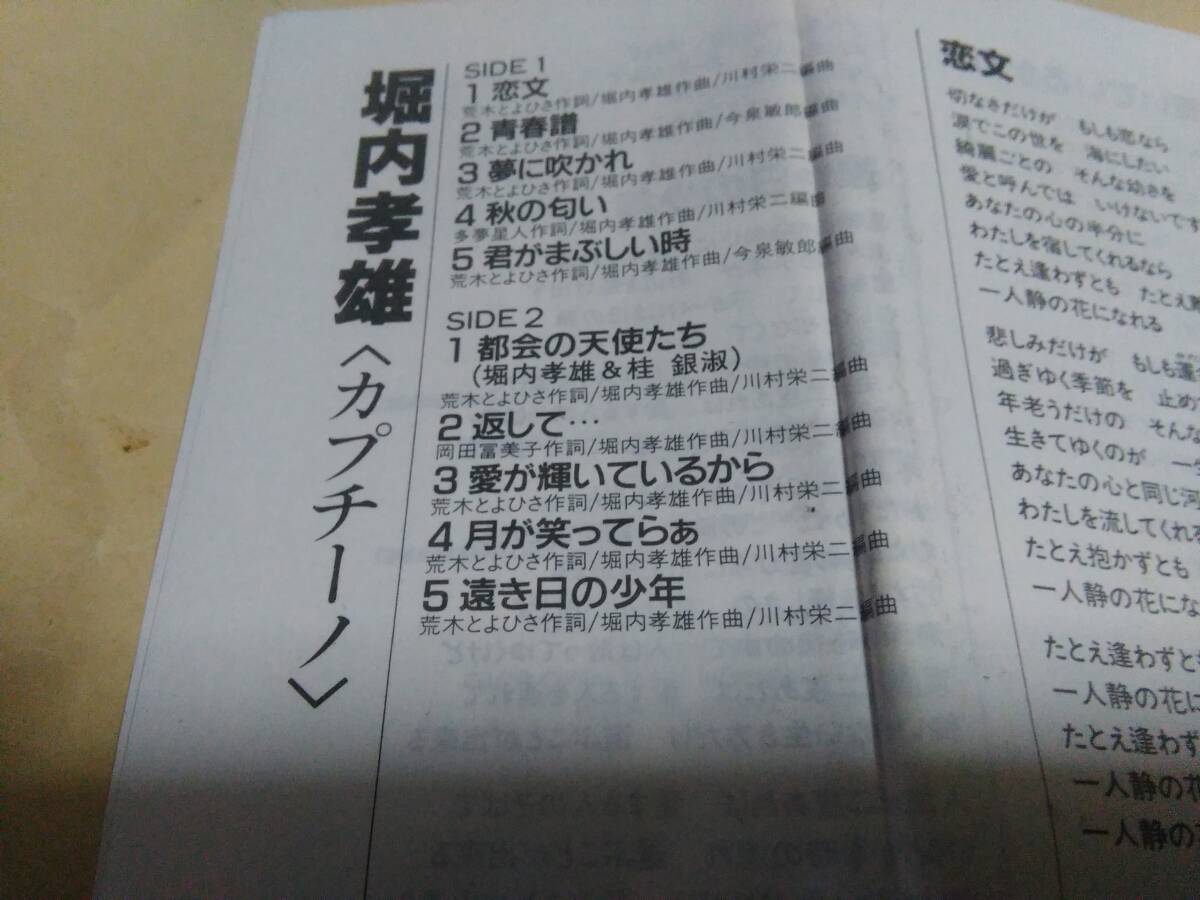 堀内孝雄〈カプチーノ〉
SIDE 1
1 恋文
荒木とよひさ作詞/堀内孝雄作曲/川村栄二編曲
2 青春譜
荒木とよひさ作詞/堀内孝雄作曲/今泉敏郎編曲
3 夢に吹かれ
荒木とよひさ作詞/堀内孝雄作曲/川村栄二編曲
4 秋の匂い
多夢星人作詞/堀内孝雄作曲/川村栄二編曲
5 君がまぶしい時
荒木とよひさ作詞/堀内孝雄作曲/今泉敏郎編曲
SIDE 2
1 都会の天使たち
(堀内孝雄&桂 銀淑)
荒木とよひさ作詞/堀内孝雄作曲/川村栄二編曲
2 返して…
岡田冨美子作詞/堀内孝雄作曲/川村栄二編曲
3 愛が輝いているから
荒木とよひさ作詞/堀内孝雄作曲/川村栄二編曲
4 月が笑ってらぁ
荒木とよひさ作詞/堀内孝雄作曲/川村栄二編曲
5 遠き日の少年
荒木とよひさ作詞/堀内孝雄作曲/川村栄二編曲
恋文
切なさだけが もしも恋なら
涙でこの世を 海にしたい
綺麗ごとの そんな幼さを
愛と呼んでは いけないです
あなたの心の半分に
わたしを宿してくれるなら
たとえ逢わずとも たとえ
一人静の花になれる
悲しみだけが もしも運
過ぎゆく季節を 止めて
年老うだけの そんな
生きてゆくのが 一
あなたの心と同じ河
わたしを流してくれる
たとえ抱かずとも
一人静の花にな
たとえ逢わずと
一人静の花に
たとえ逢わず
一人静の花
一人静の花